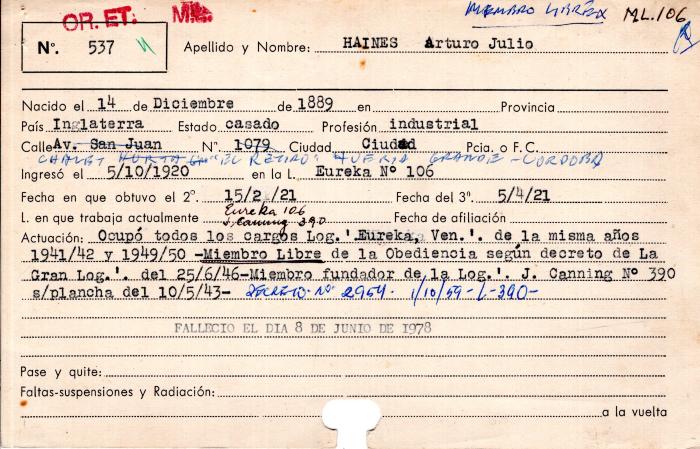 OR. ET. M.L. MIEMBRO LIBRE ML.106
Nº. 537 Apellido y Nombre: HAINES Arturo Julio
Nacido el 14 de Diciembre de 1889 en Provincia
País Inglaterra Estado casado Profesión industrial
Calle Av. San Juan Nº. 1079 Ciudad Ciudad Pcia. o F.C.
CHALET HUERTA "EL RETIRO" HUERTA GRANDE - CORDOBA
Ingresó el 5/10/1920 en la L. Eureka Nº 106
Fecha en que obtuvo el 2º. 15/2 /21 Fecha del 3º. 5/4/21
Eureka 106
L. en que trabaja actualmente J. Canning 390 Fecha de afiliación
Actuación: Ocupó todos los cargos Log.'. Eureka, Ven.'. de la misma años
1941/42 y 1949/50 -Miembro Libre de la Obediencia según decreto de La
Gran Log.'. del 25/6/46-Miembro fundador de la Log.'. J. Canning Nº 390
s/plancha del 10/5/43- DECRETO Nº 2954. 1/10/59-L-390-
FALLECIO EL DIA 8 DE JUNIO DE 1978
Pase y quite:
Faltas-suspensiones y Radiación:
a la vuelta